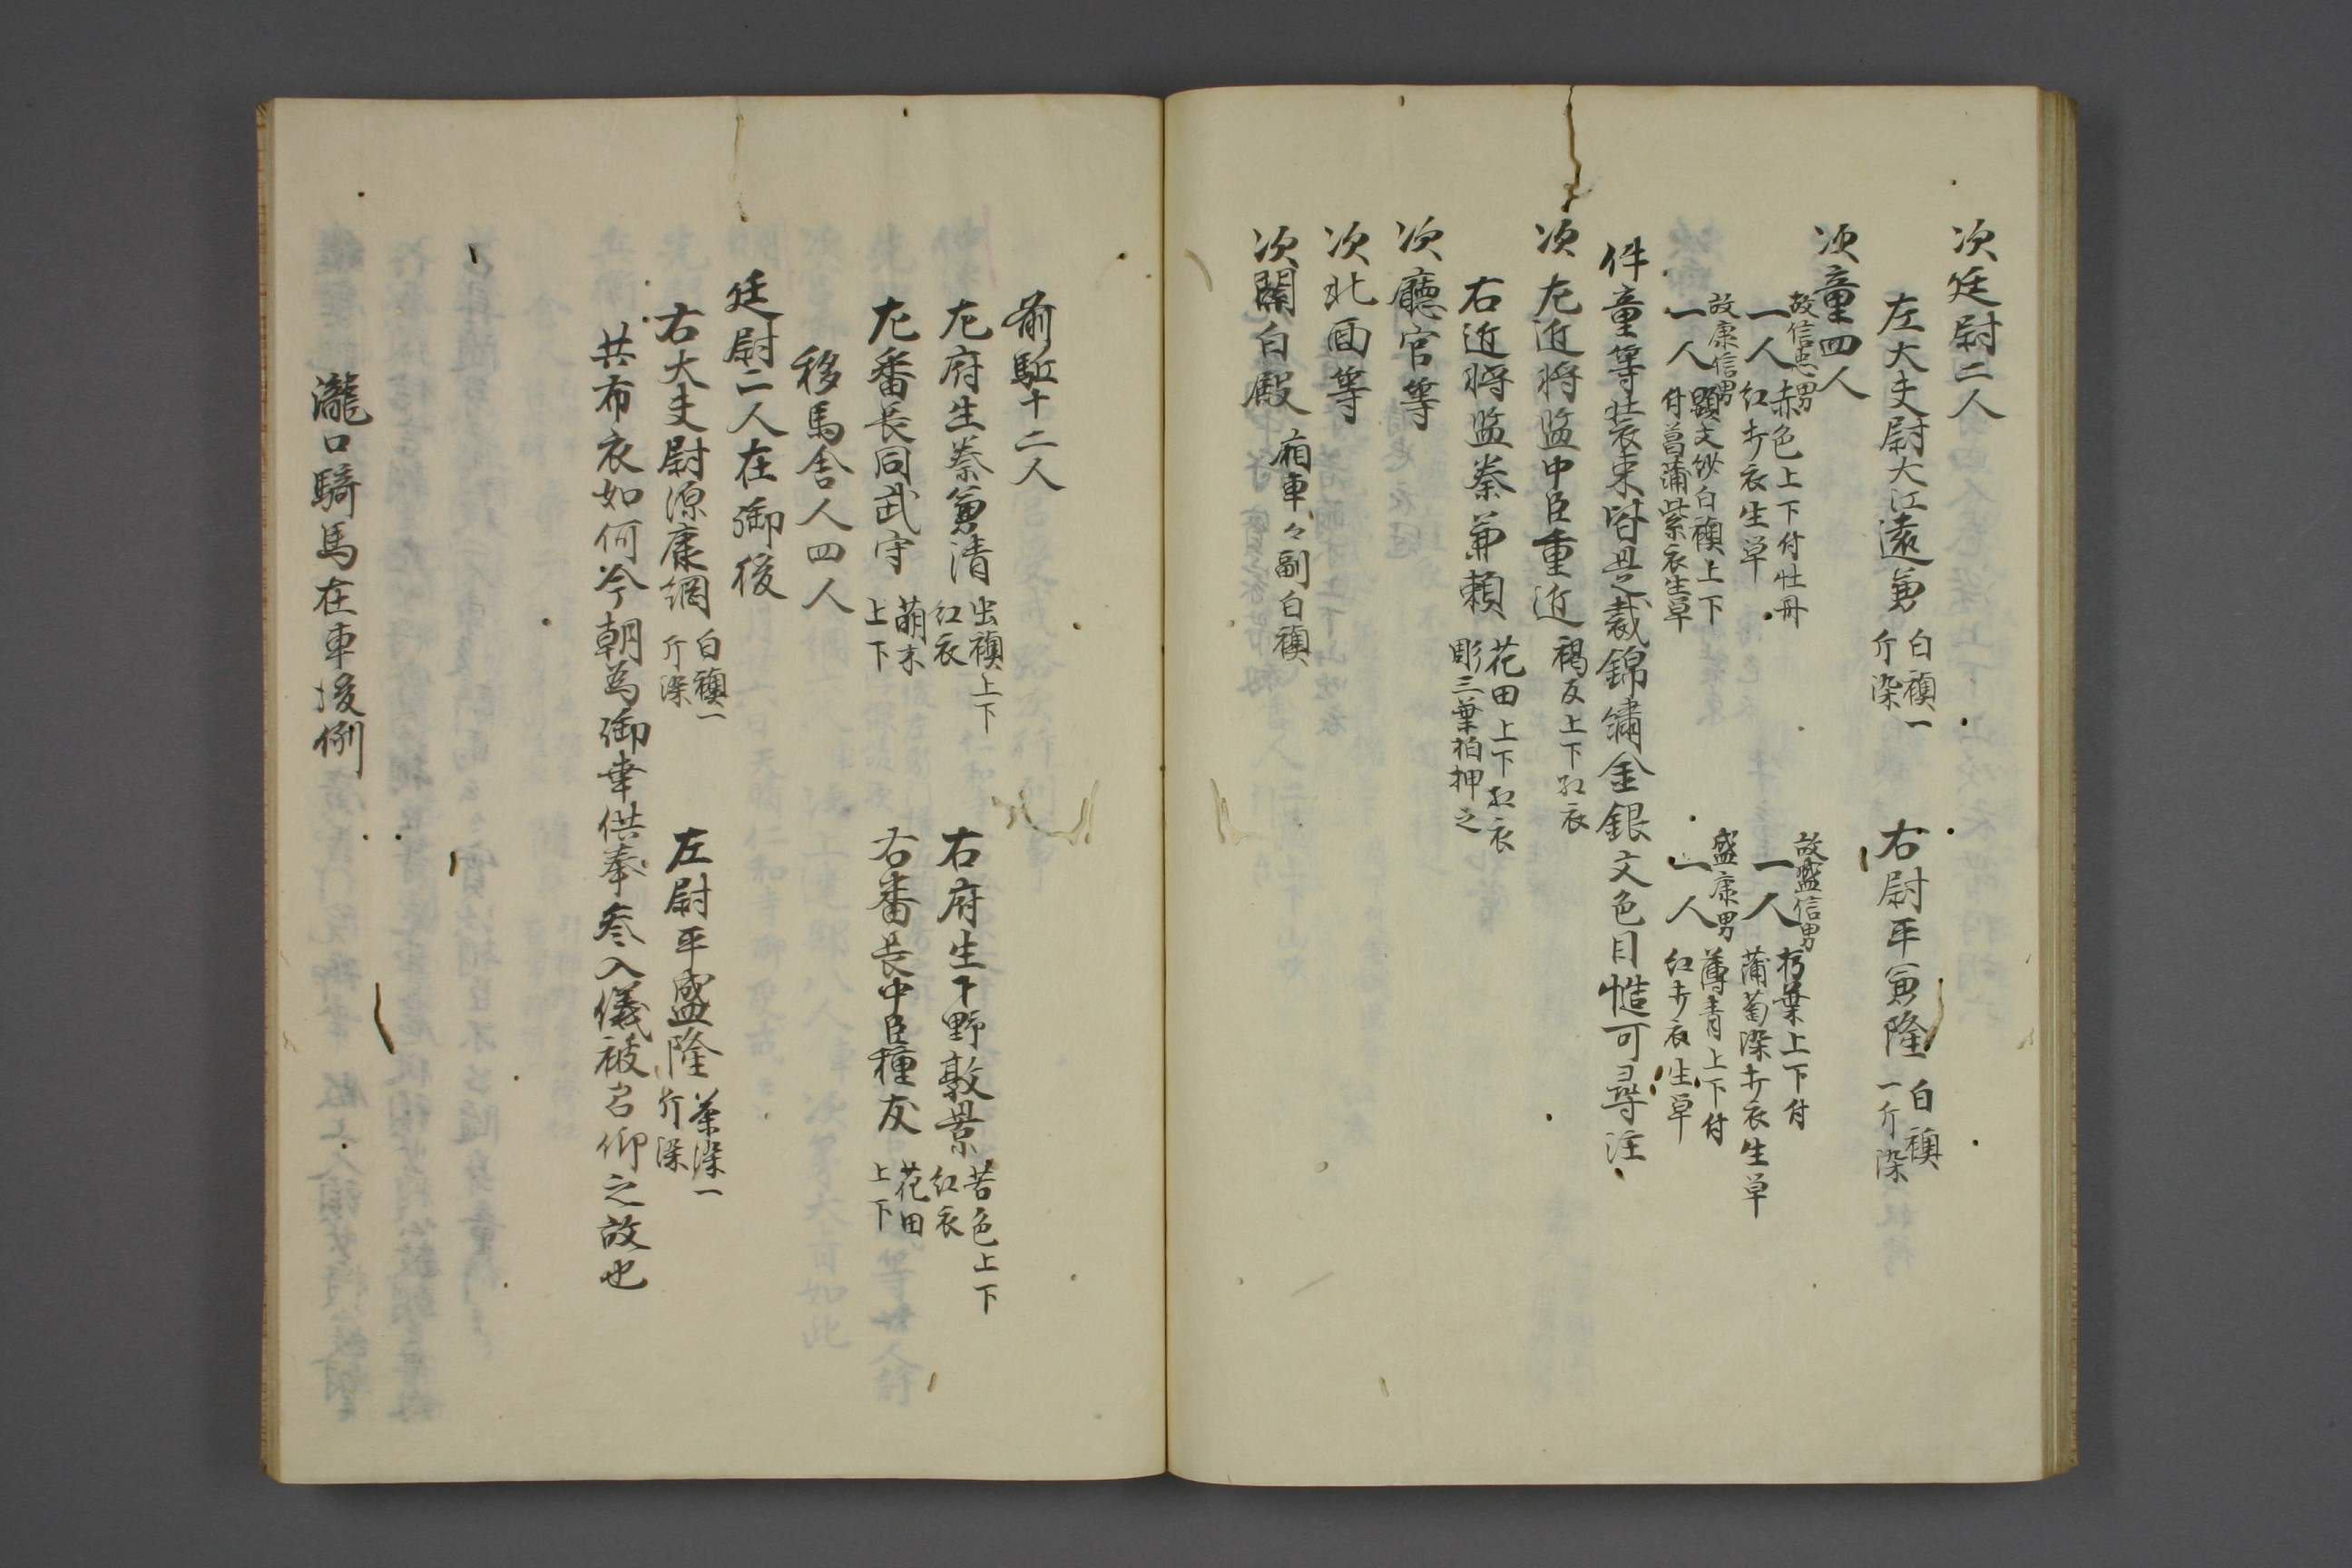 次廷尉二人
左大夫尉大江遠兼 白襖一斤染 右尉平兼隆 白襖一斤染
次童四人
故信忠男
一人 赤色上下付牡丹 紅打衣生単
故盛信男
一人 朽葉上下付 蒲萄染打衣生単
故康信男
一人 顕文紗白襖上下 付菖蒲紫衣生単
盛康男
一人 薄青上下付 紅打衣生単
件童等装束皆悉裁錦繡金銀文色目慥可尋注
次左近将監中臣重近 褐衣上下紅衣
右近将監秦兼頼 花田上下紅衣 彫三葉柏押之
次廳官等
次北面等
次関白殿 廂車々副白襖
前駈十二人
左府生秦兼清 出襖上下紅衣 右府生下野敦景 苦色上下紅衣
左番長同武守 萌木上下 右番長中臣種友 花田上下
移馬舎人四人
廷尉二人在御後
右大夫尉源康綱 白襖一斤染 左尉平盛隆 茶染一斤染
共布衣如何今朝為御幸供奉参入儀被召仰之故也
瀧口騎馬在車後例